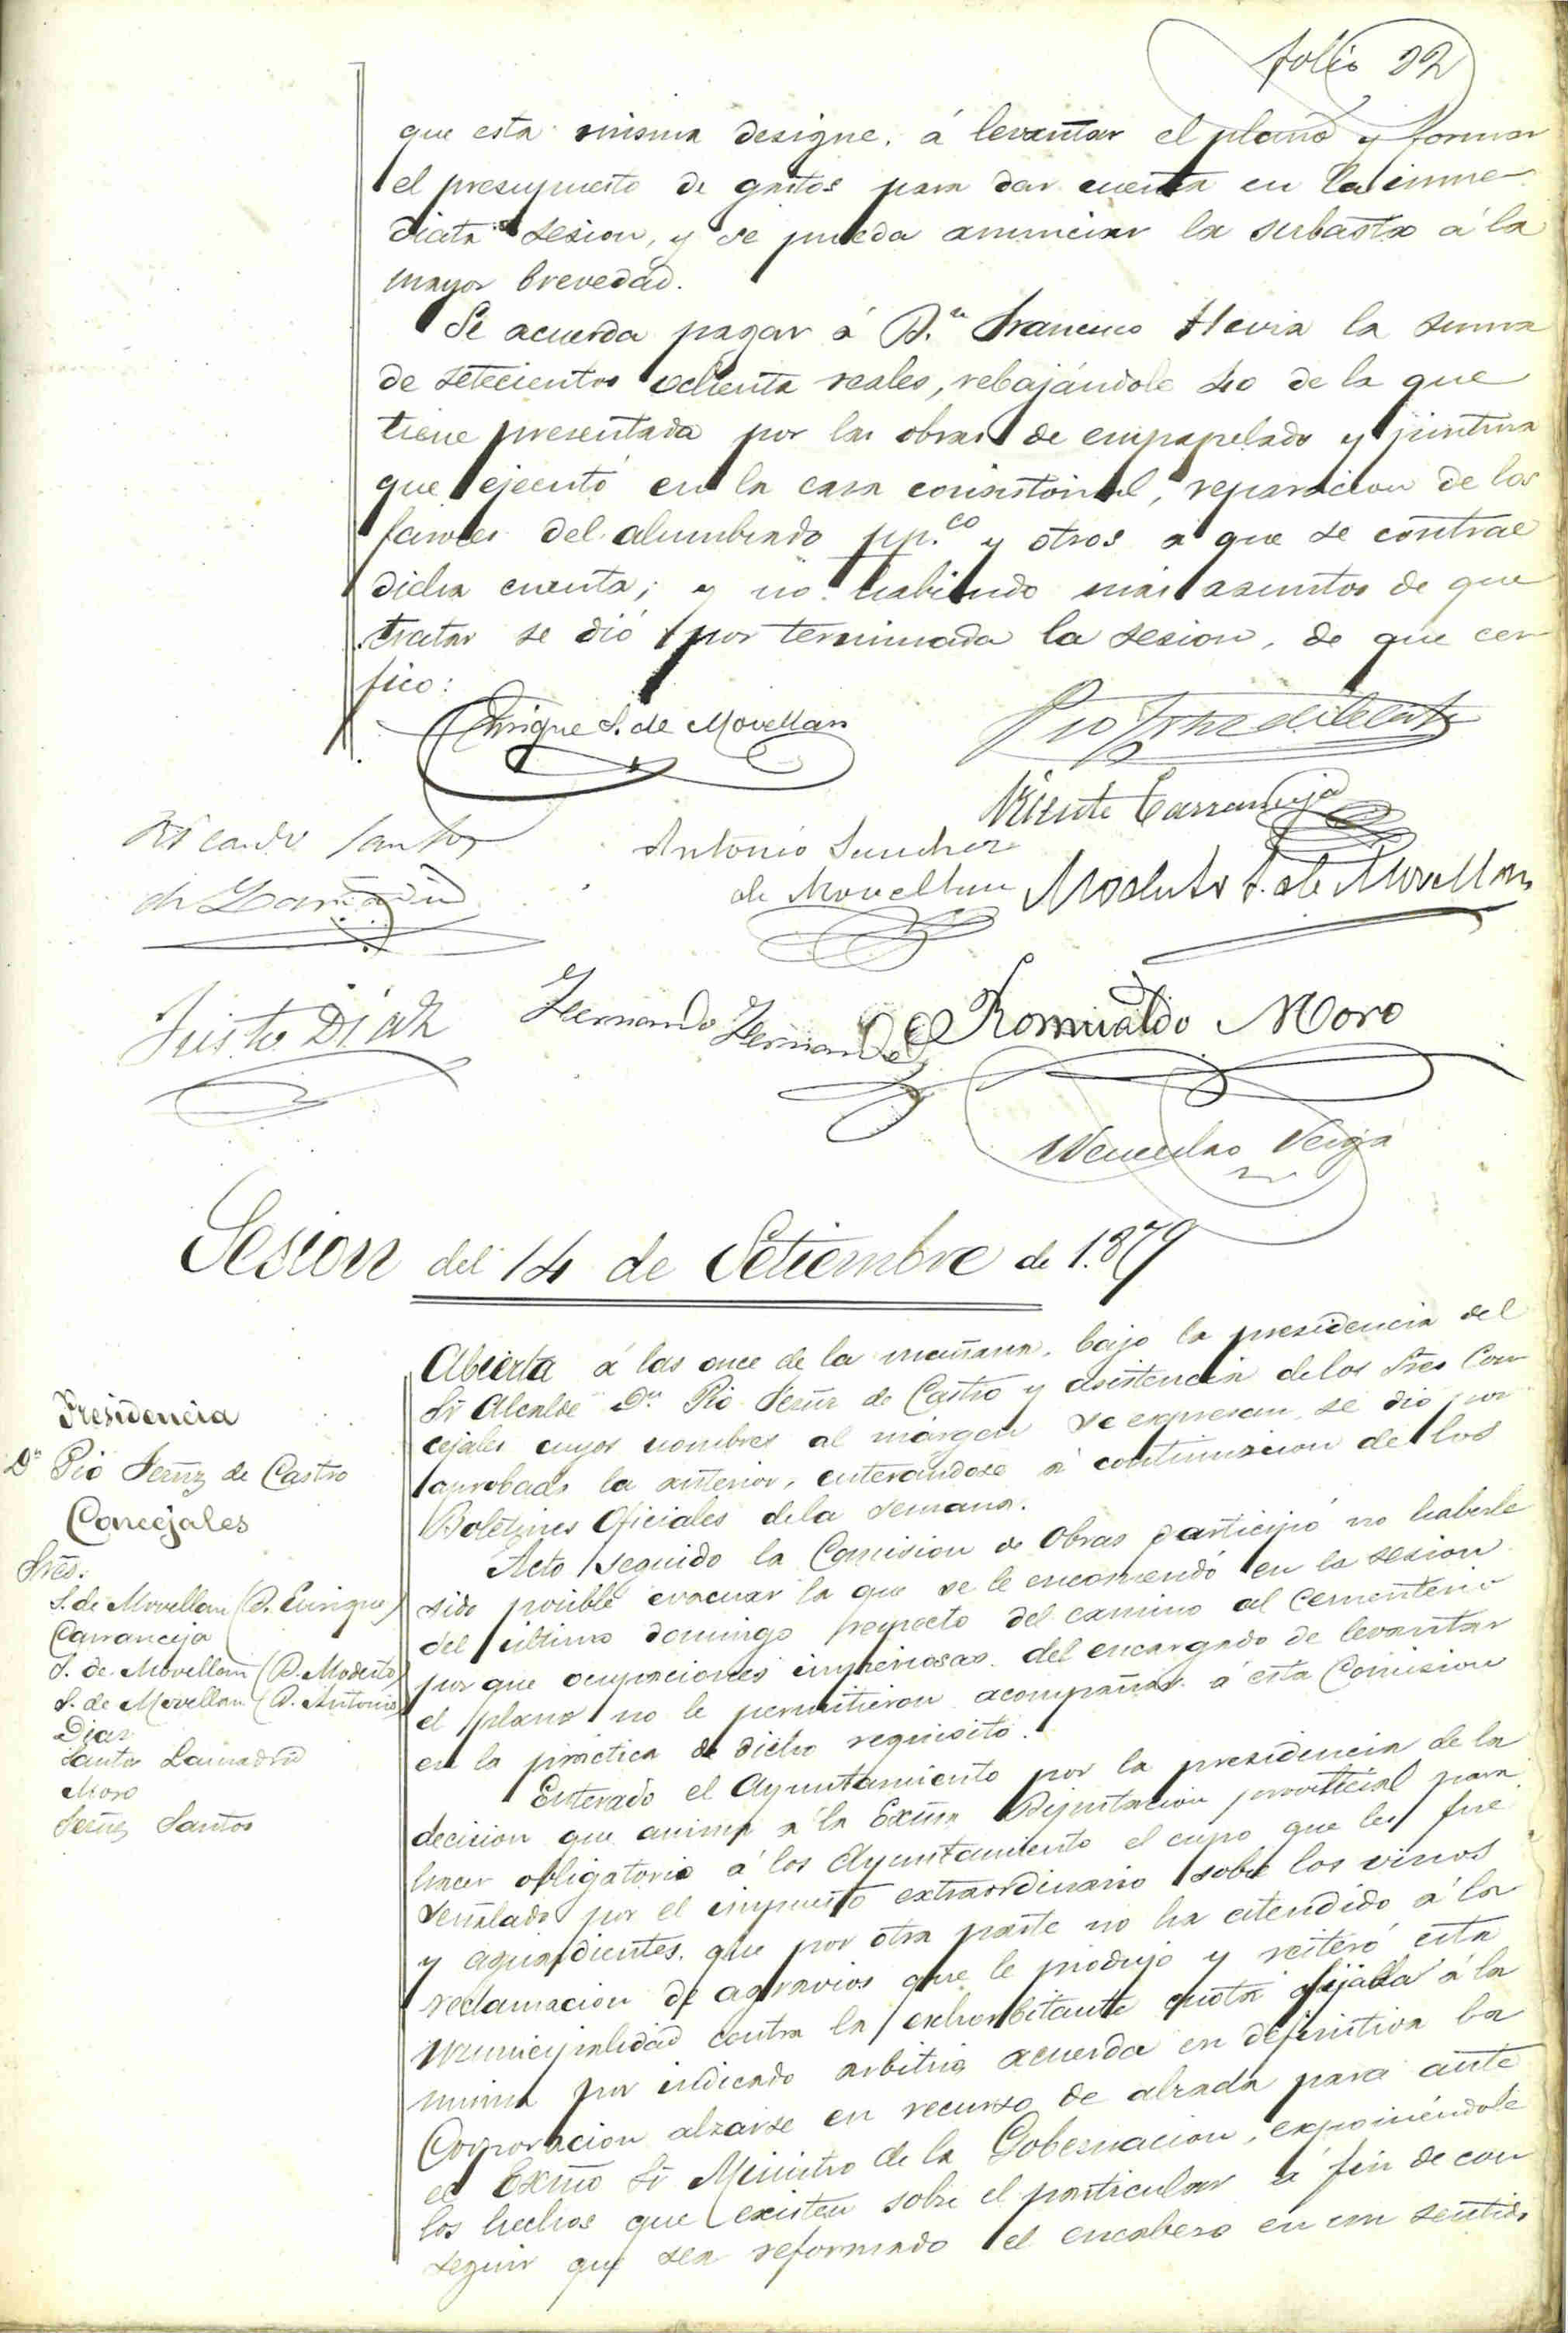 folio 22
que esta misma designe, á levantar el plano y formar
el presupuesto de gastos para dar cuenta en la inme-
diata sesion, y se pueda anunciar la subasta á la
mayor brevedad.
Se acuerda pagar á D.n Francisco Hevia la suma
de setecientos ochenta reales, rebajándole 40 de la que
tiene presentada por las obras de empapelado y pintura
que ejecutó en la casa consistorial, reparacion de los
faroles del alumbrado pp.co y otros a que se contrae
dicha cuenta; y no habiendo mas asuntos de que
tratar se dió por terminada la sesion, de que cer
fico:
Enrique S. de Movellan
Vicente Carranceja
Ricardo Santos
de Lamadrid
Antonio Sanchez
de Movellan
Modesto S. de Movellan
Justo Diaz
Fernando Fernandez
Romualdo Moro
Wenceslao Veiga
Sesion del 14 de Setiembre de 1.879
Presidencia
Dn Pio Fernz de Castro
Concejales
Sres.
S. de Movellan (D. Enrique)
Carranceja
S. de Movellan (D. Modesto)
S. de Movellan (D. Antonio)
Diaz
Santos Lamadrid
Moro
Fernz Santos
Abierta á las once de la mañana, bajo la presidencia del
Sr Alcalde Dn Pio Fernz de Castro y asistencia de los Sres Con
cejales cuyos nombres al márgen se expresan, se dió por
aprobada la anterior, enterandose á continuacion de los
Boletines Oficiales de la semana.
Acto seguido la Comision de Obras participó no haberle
sido posible evacuar la que se le encomendó en la sesion
del último domingo respecto del camino al Cementerio
por que ocupaciones imperiosas del encargado de levantar
el plano no le permitieron acompañar á esta Comision
en la práctica de dicho requisito.
Enterado el Ayuntamiento por la presidencia de la
decision que anima á la Exma Diputacion provincial para
hacer obligatorio á los Ayuntamiento el cupo que les fue
señalado por el impuesto extraordinario sobre los vinos
y aguardientes, que por otra parte no ha atendido á la
reclamacion de agravios que le produjo y reiteró esta
municipalidad contra la exhorbitante cuota fijada á la
misma por indicado arbitrio acuerda en definitiva la
Corporacion alzarse en recurso de alzada para ante
el Exmo Sr Ministro de la Gobernacion, exponiéndole
los hechos que existen sobre el particular á fin de con
seguir que sea reformado el encabezo en un sentido